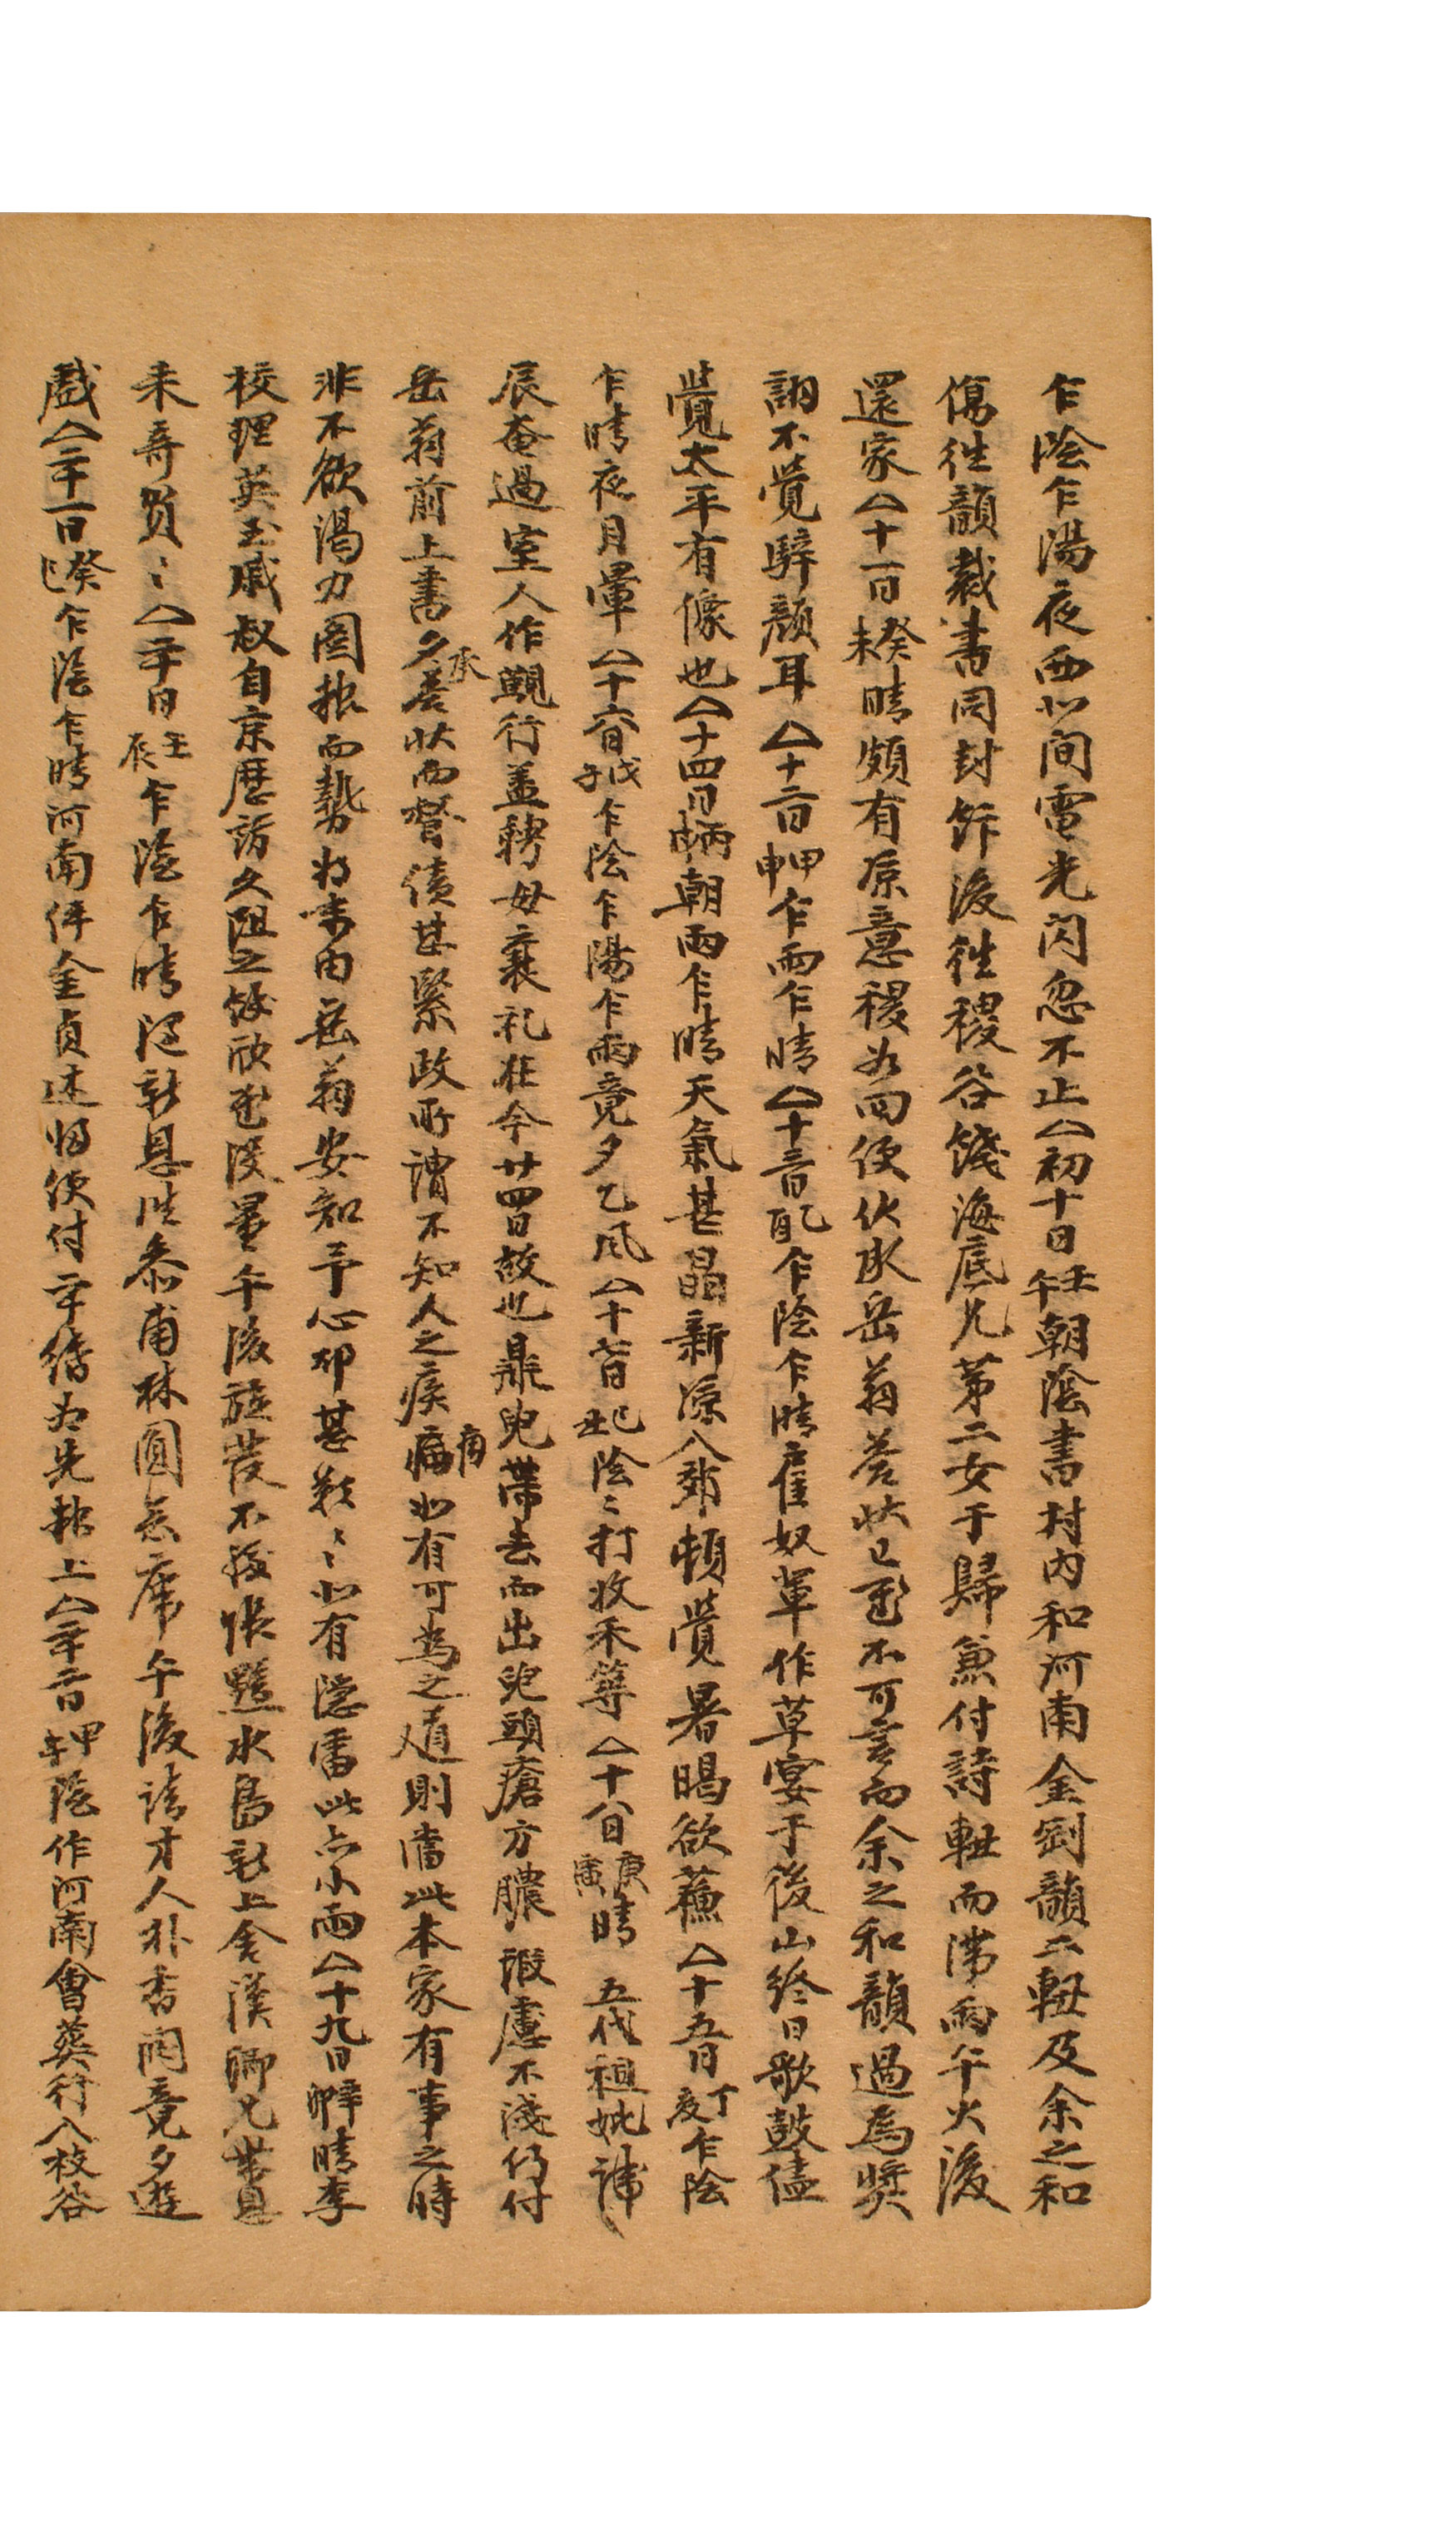 乍陰乍陽夜西北間電光閃忽不止△初十日壬午朝陰書村內和河南金劉韻二軸及余之和
傷徃韻裁書同封餙後徃稷谷餞海底兄第二女于歸兼付詩軸而滯雨午火後
還家△十一日癸未晴頗有凉意稷如回便伏承岳翁答狀已慰不可言而余之和韻過爲奬
詡不覺騂顔耳△十二日甲申乍雨乍晴△十三日乙酉乍陰乍晴雇奴軰作草宴于後山終日歌鼓儘
覺太平有像也△十四日丙申朝雨乍晴天氣甚晶新凉入郊頓覺暑暍欲蘓△十五日丁亥乍陰
乍晴夜月暈△十六日戊子乍陰乍陽乍雨竟夕乙風△十七日己丑陰々打收禾等△十八日庚寅晴 五代祖妣諱
辰奄過室人作覲行盖聘母襄礼在今廿四日故也鼎兒帶去而出兒頭瘡方膿瘢慮不淺仍付
岳翁前上書夕承答狀而督債甚緊政所謂不知人之疾痛痛如有可爲之道則當此本家有事之時
非不欲渴力圖報而勢如末由岳翁安知予心耶甚歎々々如有隱雷此亦小雨△十九日辛卯晴李
校理英玉戚叔自京歷訪久阻之餘欣慰深量午後旋發不勝悵黯水島新上舍漢卿兄帶眞
未奇貿々△二十日壬辰乍陰乍晴泥新恩胜參甫林圓忌席午後請才人朴香開竟夕遊
戱△二十一日癸巳乍陰乍晴河南伻金貞述歸便付二十緡如先報上△二十二日甲午陰作河南會葬行入枝谷